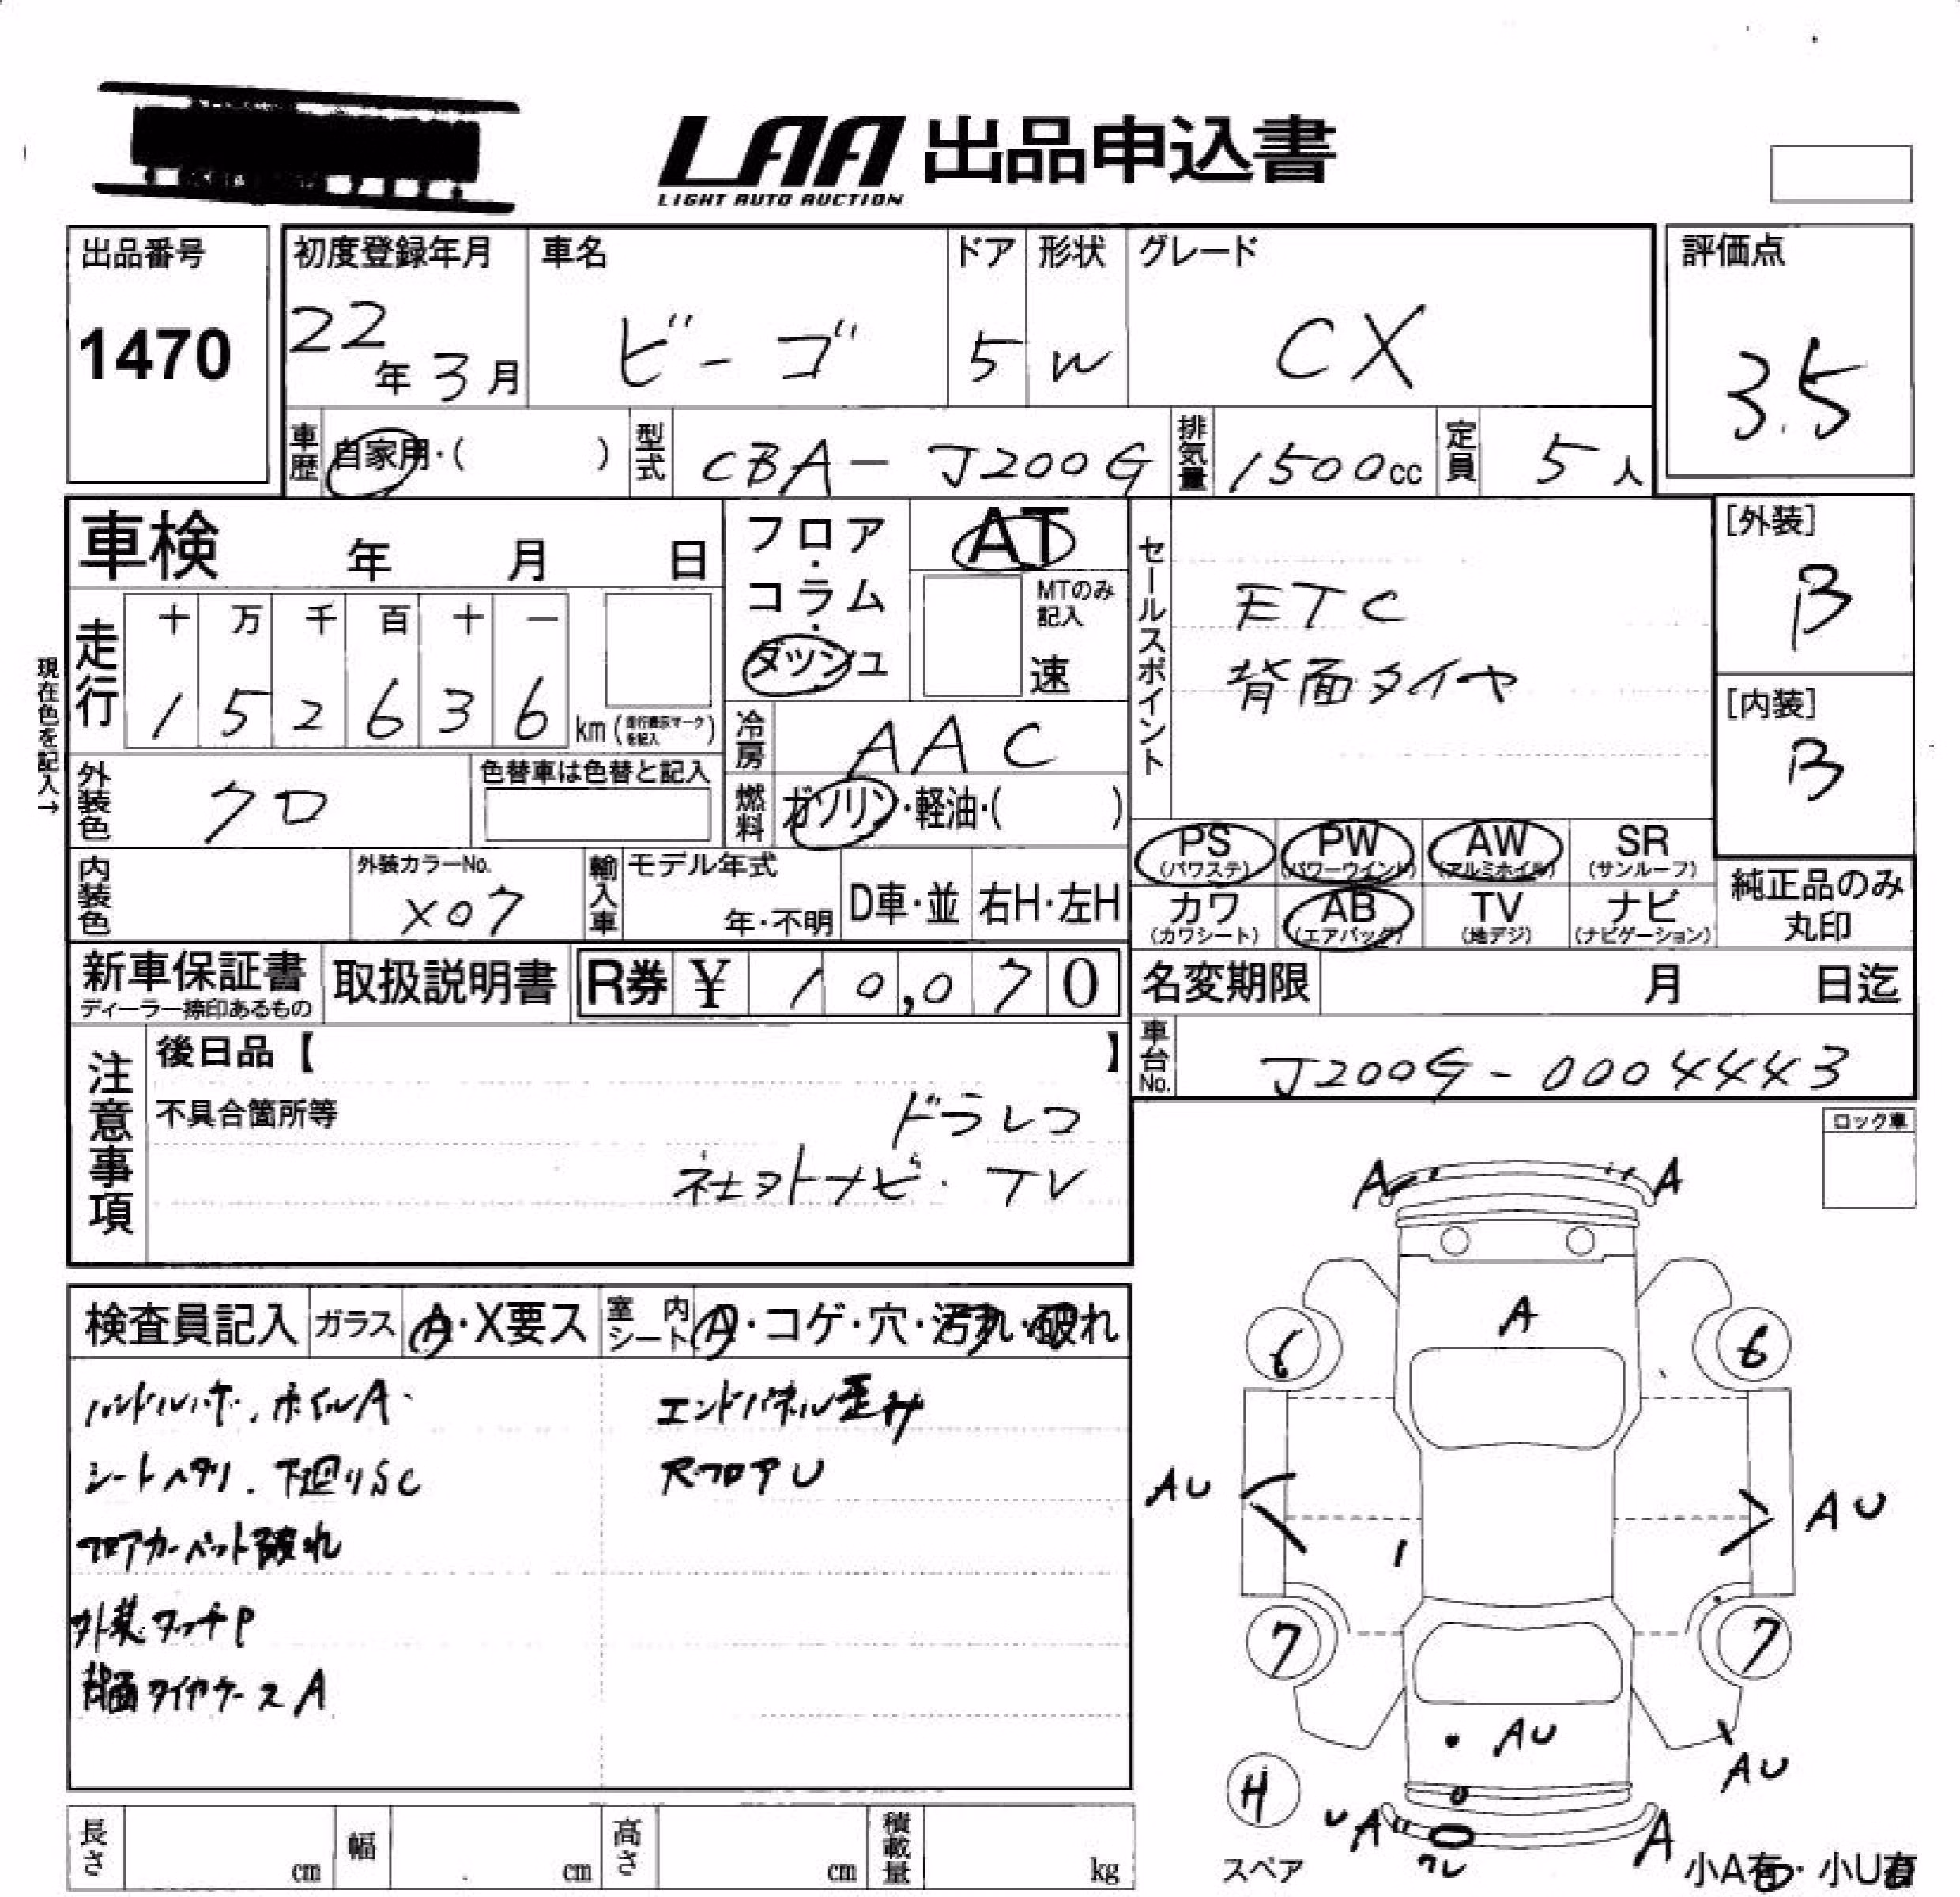 LAA 出品申込書
LIGHT AUTO AUCTION
出品番号
1470
初度登録年月
22年3月
車名
ビーゴ
ドア
5
形状
W
グレード
CX
評価点
3.5
車歴
自家用・( )
型式
CBA-J200G
排気量
1500cc
定員
5人
車検 年 月 日
フロア・コラム・ダッシュ
AT
MTのみ記入
速
セールスポイント
ETC
背面タイヤ
[外装]
B
[内装]
B
現在色を記入→
走行
十 万 千 百 十 一
1 5 2 6 3 6
km(走行表示マークを記入)
冷房
AAC
外装色
クロ
色替車は色替と記入
燃料
ガソリン・軽油・( )
内装色
外装カラーNo.
X07
輸入車
モデル年式
年・不明
D車・並
右H・左H
PS
(パワステ)
PW
(パワーウインド)
AW
(アルミホイル)
SR
(サンルーフ)
カワ
(カワシート)
AB
(エアバッグ)
TV
(地デジ)
ナビ
(ナビゲーション)
純正品のみ
丸印
新車保証書
ディーラー捺印あるもの
取扱説明書
R券 ¥ 10,070
名変期限 月 日迄
車台No.
J200G-0004443
注意事項
後日品【 】
不具合箇所等
ドラレコ
社外ナビ・TV
ロック車
検査員記入
ガラス
A・X要ス
室内シート
A・コゲ・穴・汚れ・破れ
ハンドルハゲ、ホイルA
シートヘタリ、下廻りSC
フロアカーペット破れ
外装タッチP
背面タイヤケースA
エンドパネル歪み
R.フロアU
A A
A
6 6
AU AU
7 7
AU
AU
H
スペア
UA
A
ワレ
小A有・小U有
長さ cm
幅 cm
高さ cm
積載量 kg